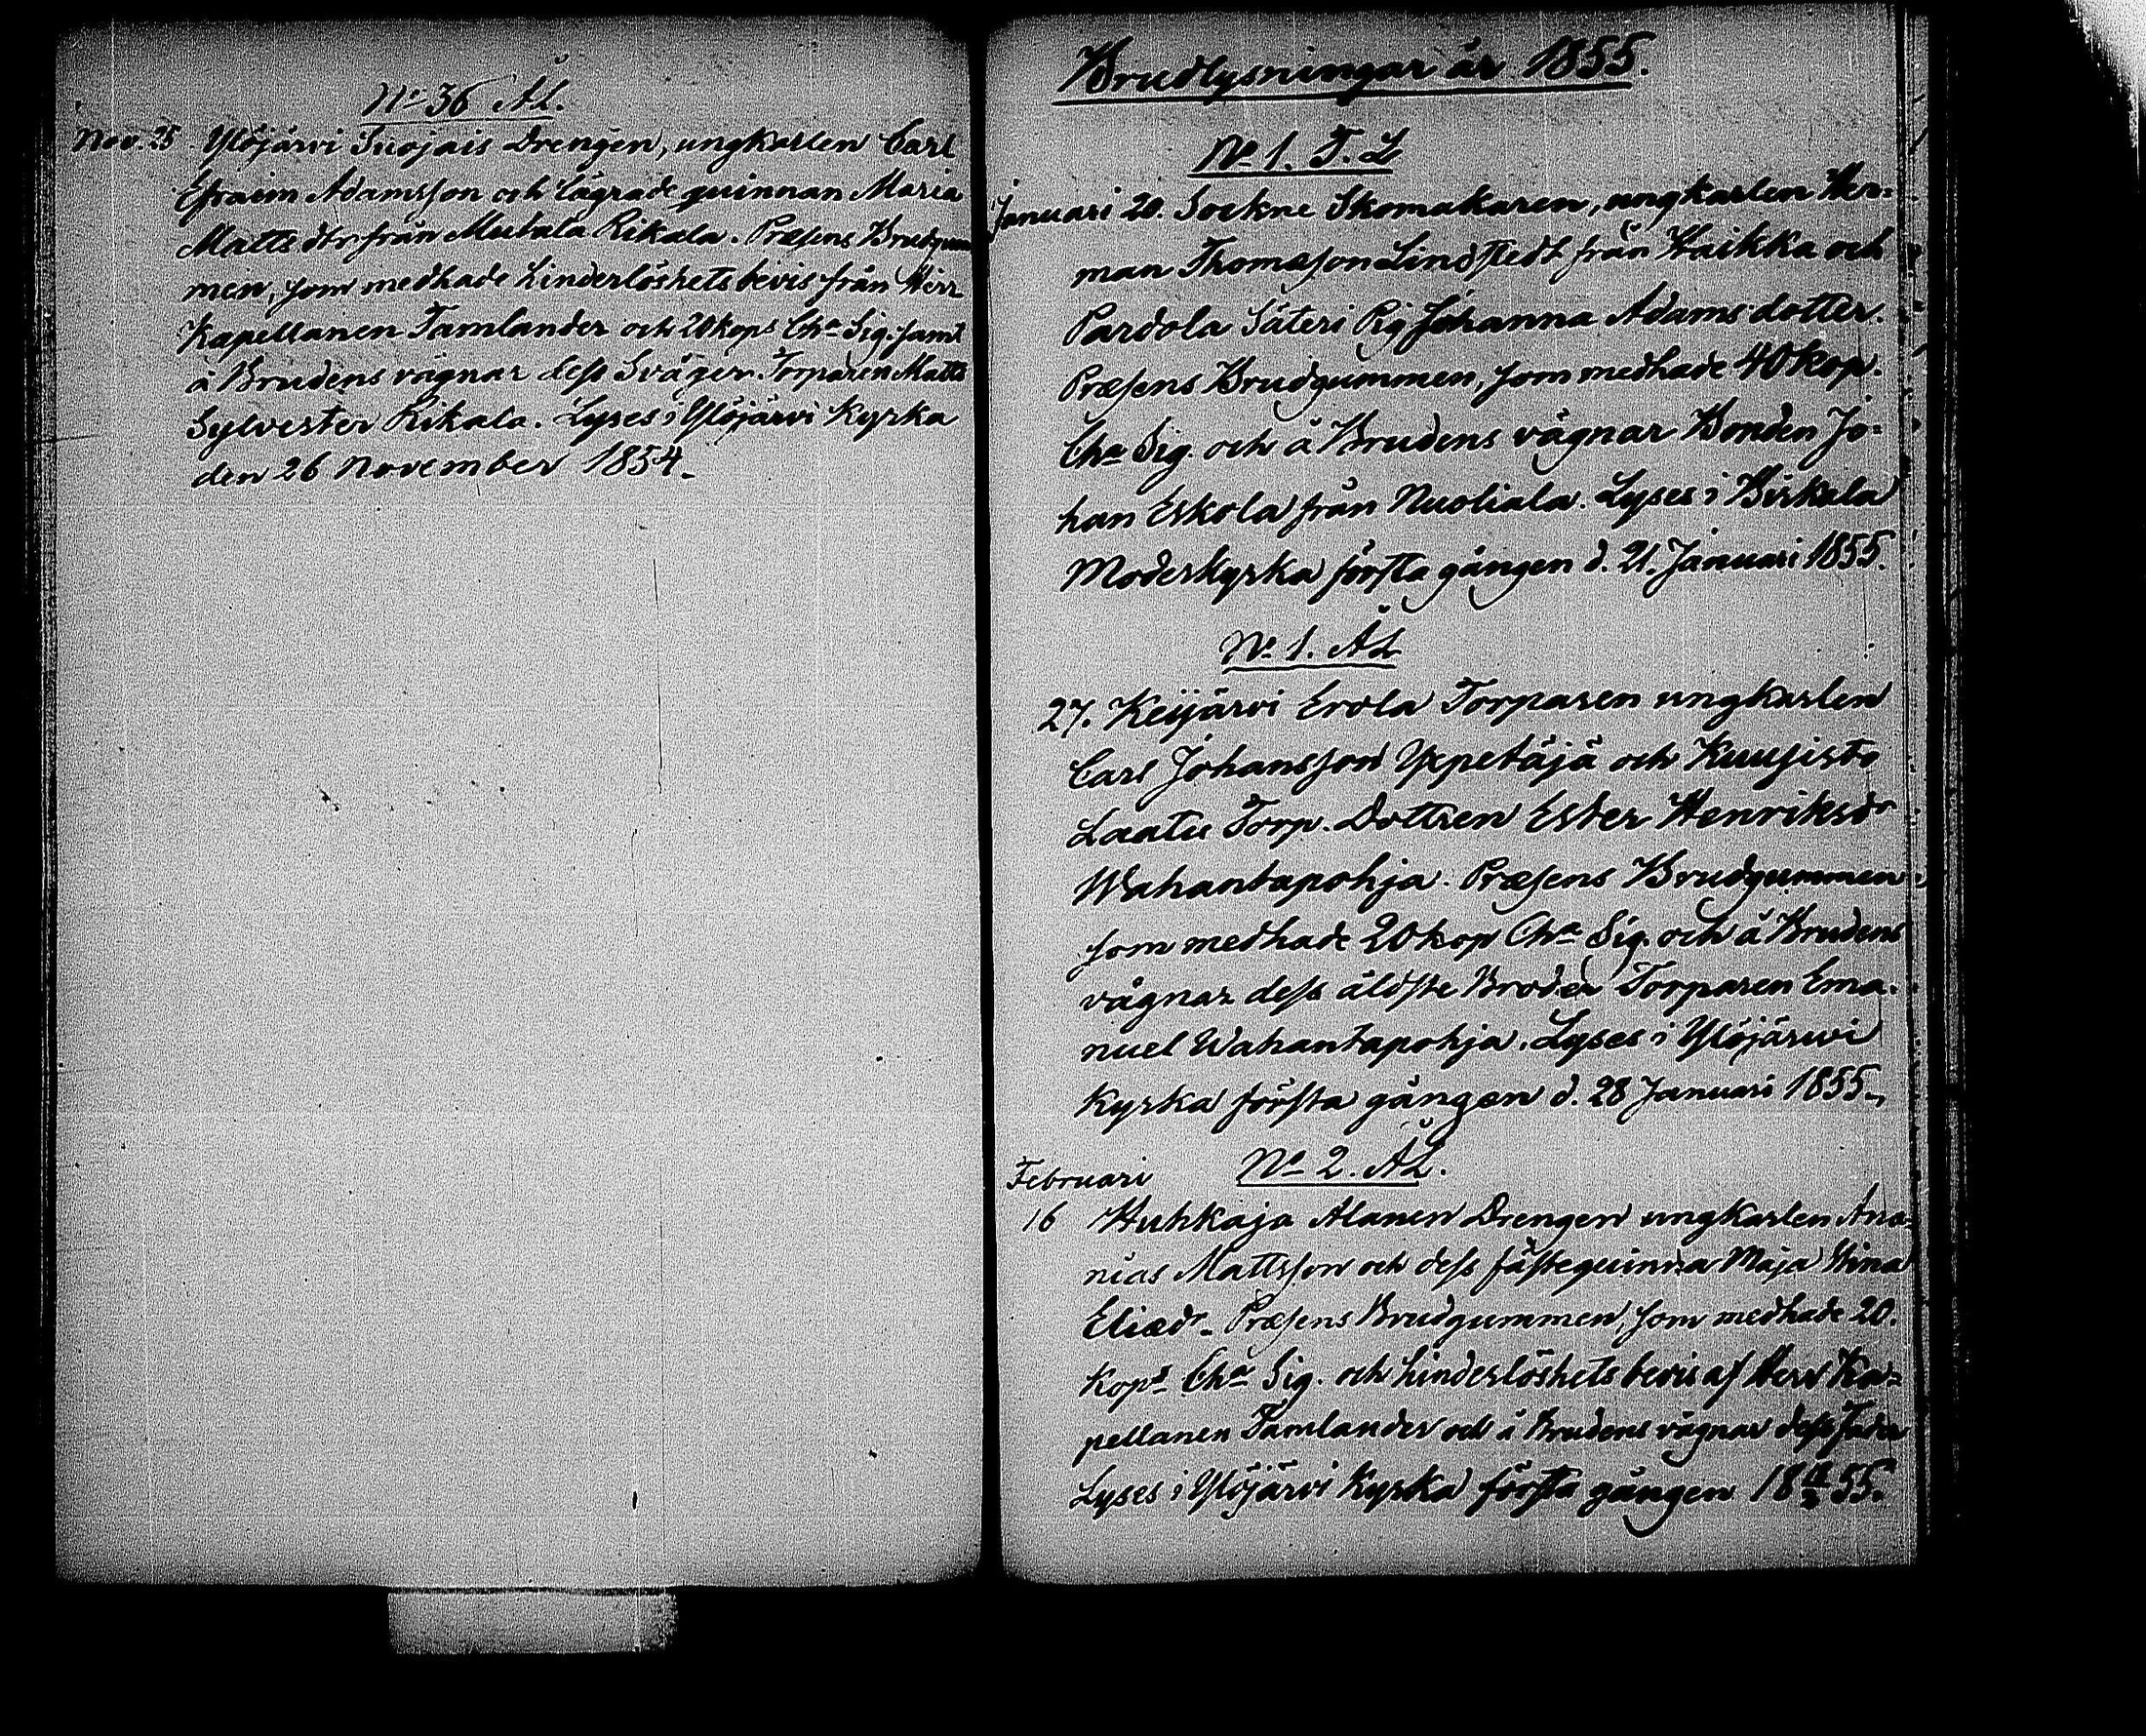 No 36 ÅL.
Nov. 25. Ylöjärvi Suojais Drengen, ungkarlen Carl
Efraim Adamsson och lägrade quinnan Maria
Matts dtr från Mutala Rikala. Præsens Brudgum
men, som medhade hinderlöshets bevis från Herr
Kapellanen Tamlander och 20 kops Cha Sig. samt
å Brudens vägnar dess Svåger Torparen Matts
Sylvester Rikala. Lyses i Ylöjärvi Kyrka
den 26 November 1854.
Brudlysningar år 1855.
No 1. T. L
Januari 20. Sockne Skomakaren, ungkarlen Her=
man Thomasson Lindstedt från Haikka och
Pardola Säteri Pig Johanna Adams dotter.
Præsens Brudgummen, som medhade 40 kop.
Cha Sig. och å Brudens vägnar Bonden Jo=
han Eskola från Nuoliala. Lyses i Birkala
Moderkyrka första gången d. 21. Januari 1855.
No 1. ÅL
27. Keijärvi Erola Torparen ungkarlen
Carl Johansson Yppetäjä och Kuusisto
Laatu Torp. Dottren Ester Henriksdr
Wahantapohja. Præsens Brudgummen
som medhade 20 kop Cha Sig. och å Brudens
vägnar dess äldste Broder Torparen Ema-
nuel Wahantapohja. Lyses i Ylöjärwi
Kyrka första gången d. 28 Januari 1855.
Februari No 2. ÅL.
16 Huhkaja Alanen Drengen ungkarlen Ana=
nias Mattsson och dess fästequinna Maja Stina
Eliædr. Præsens Brudgummen, som medhade 20.
kops Cha Sig. och hinderlöshets bevis af Herr Ka=
pellanen Tamlander och å Brudens vägnar dess Fader
Lyses i Ylöjärvi Kyrka första gången 18 55.